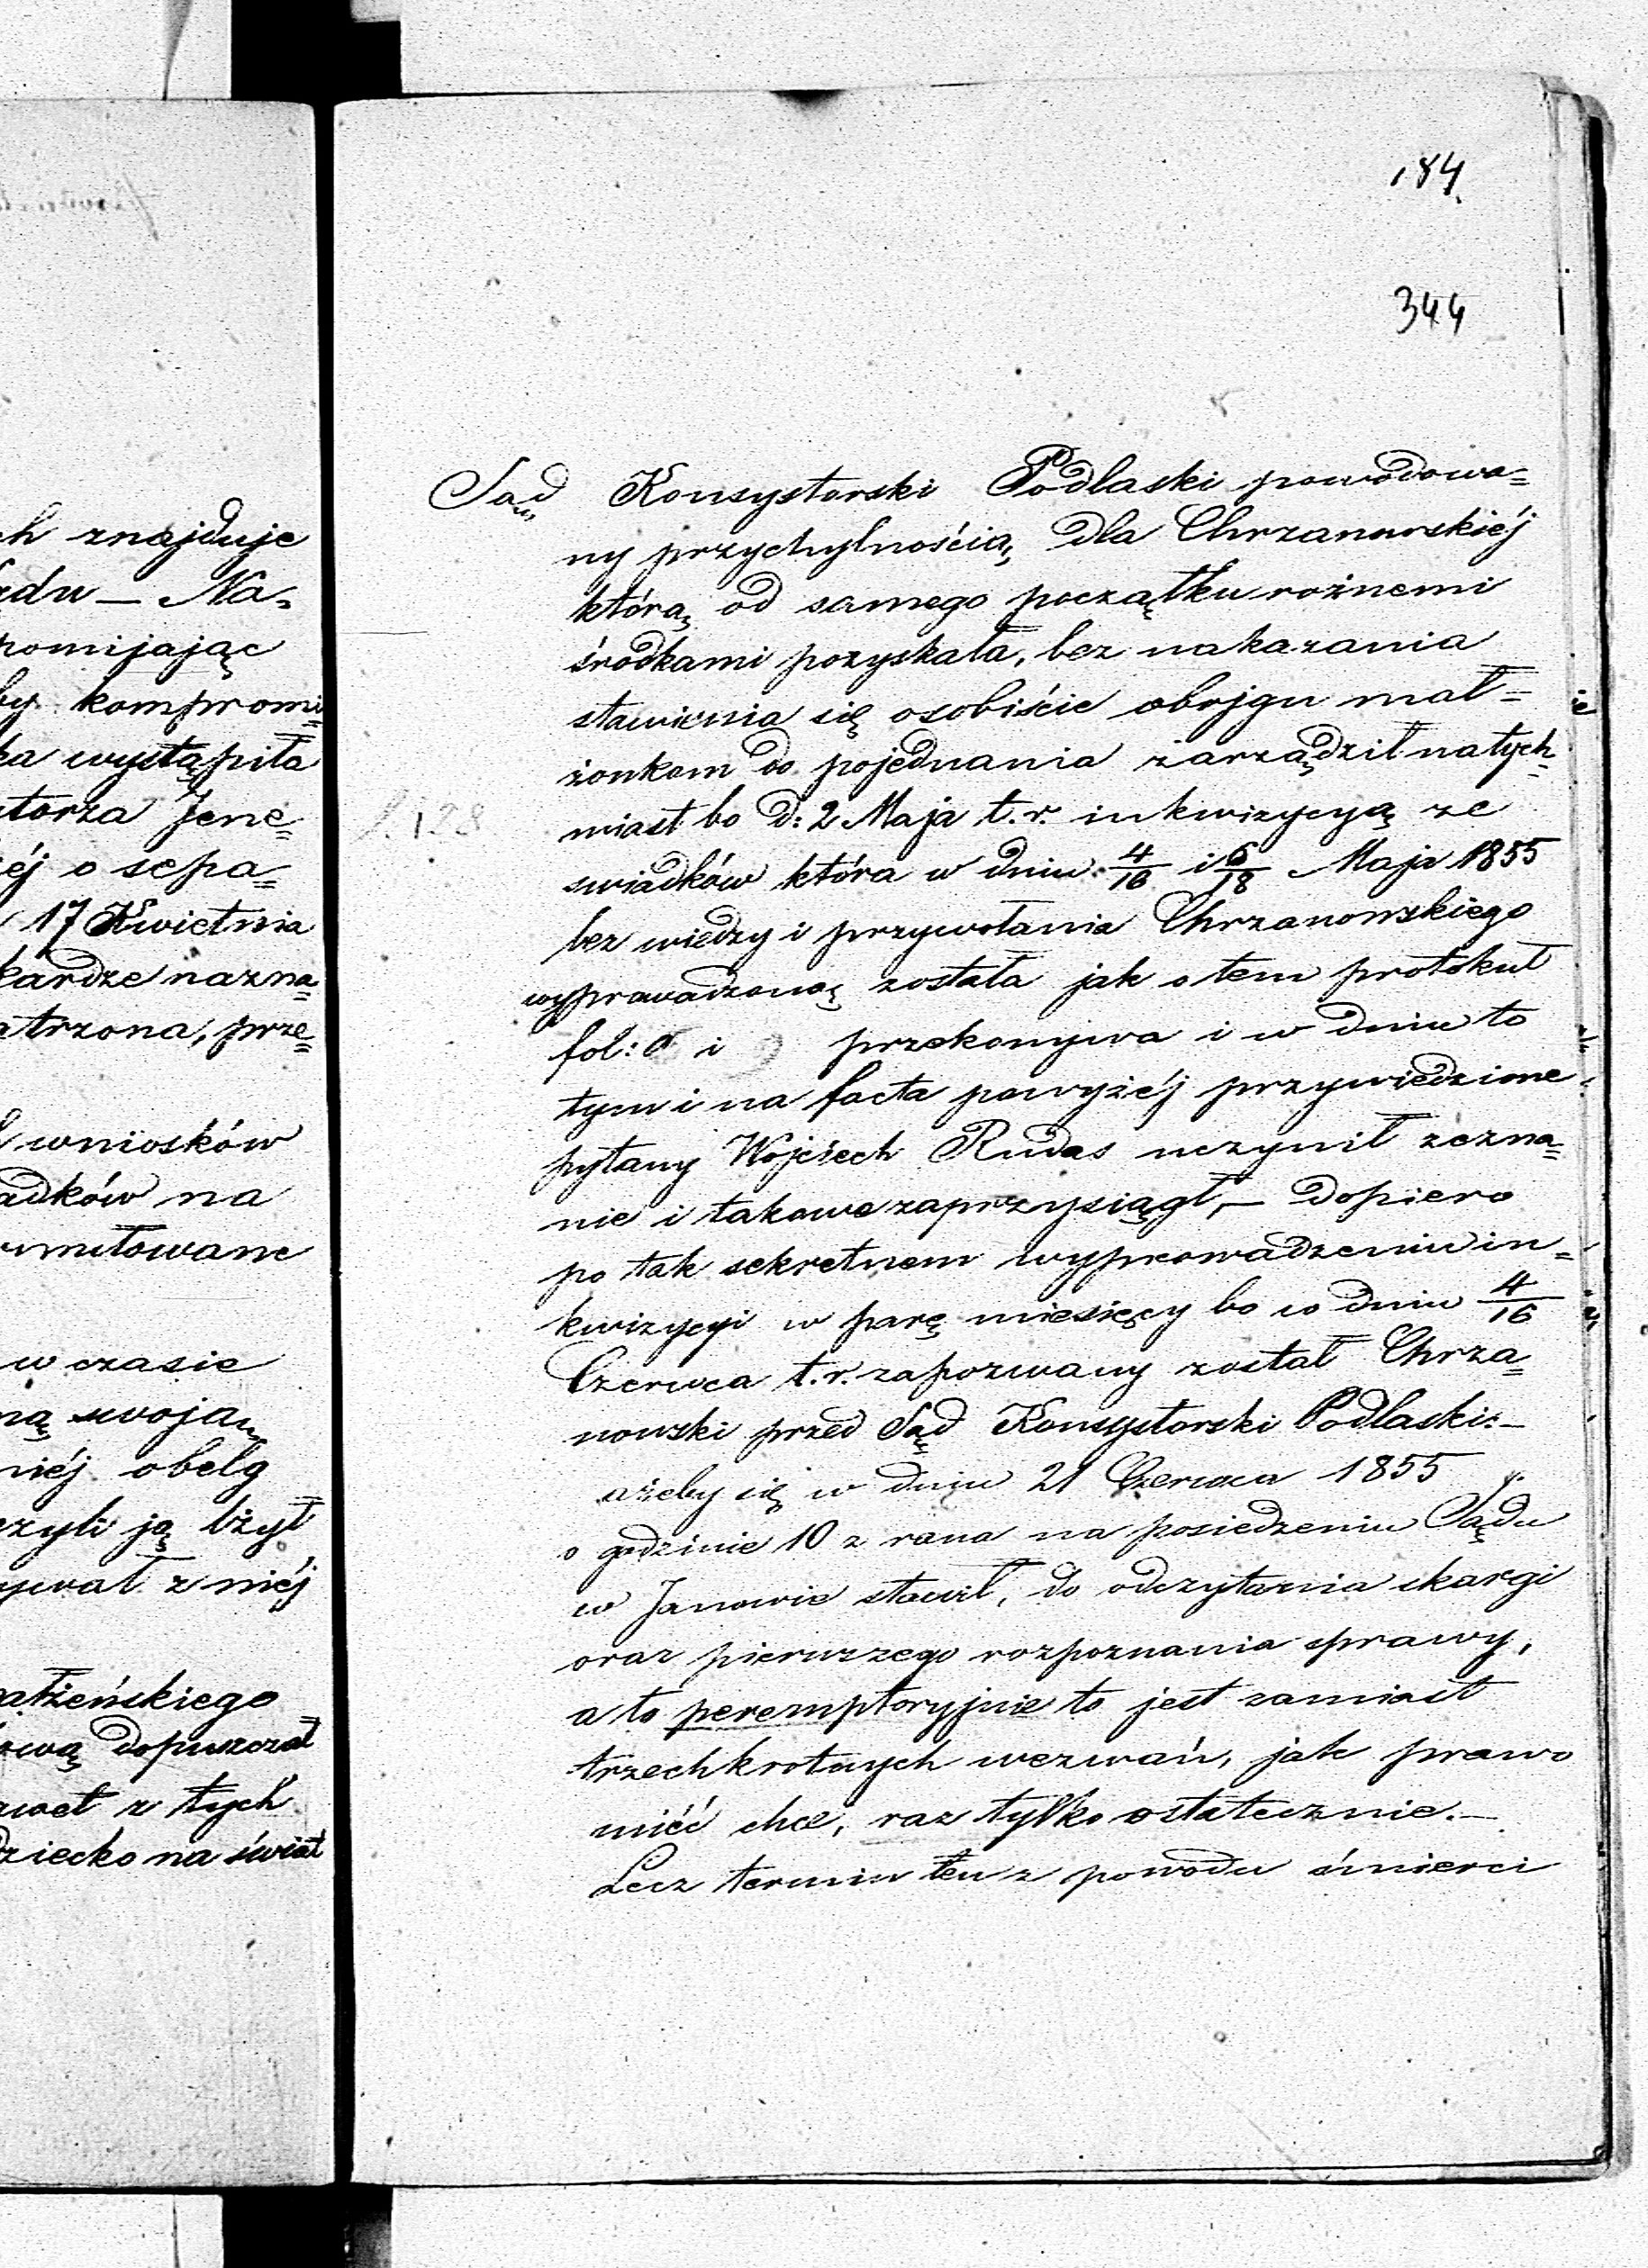 184
344
ch znajduje
Na=
pomijając
by kompromi=
ka wystąpiła
Jene=
éj o sepa=
17 Kwietnia
kardze nazna=
atrzona, prze=
wniosków
adków na
w czasie
ną swoją
niéj obelg
czyli ją lżył
ywał z niéj
małżeńskiego
dopuszczał
z tych
dziecko na świat
Sąd Konsystorski Podlaski powodowa=
ny przychylnością dla Chrzanowskiéj
którą od samego początku rożnemi
środkami pozyskała, bez nakazania
stawienia się osobiście obojgu mał=
żonkom do pojednania zarządził natych=
miast bo d: 2 Maja t.r. inkwizycyą ze
swiadków która w dniu 4/16 i 6/18 Maja 1855
bez wiedzy i przywołania Chrzanowskiego
wyprowadzoną została jak o tem protokuł
fol: 6 i 9 przekonywa i w dniu to
tym i na facta powyżéj przywiedzione
pytany Wojciech Rudas uczynił zezna=
nie i takowe zaprzysiągł,— dopiero
po tak sekretnem wyprowadzeniu in=
kwizycyi w parę miesięcy bo w dniu 4/16
Czerwca t.r. zapozwany został Chrza=
nowski przed Sąd Konsystorski Podlaski:—
ażeby się w dniu 21 Czerwca 1855
o godzinie 10 z rana na posiedzeniu Sądu
w Janowie stawił, do odczytania skargi
oraz pierwszego rozpoznania sprawy,
a to peremptoryjnie to jest zamiast
trzechkrotnych wezwań, jak prawo
miéć chce, raz tylko ostatecznie.—
Lecz termin ten z powodu śmierci